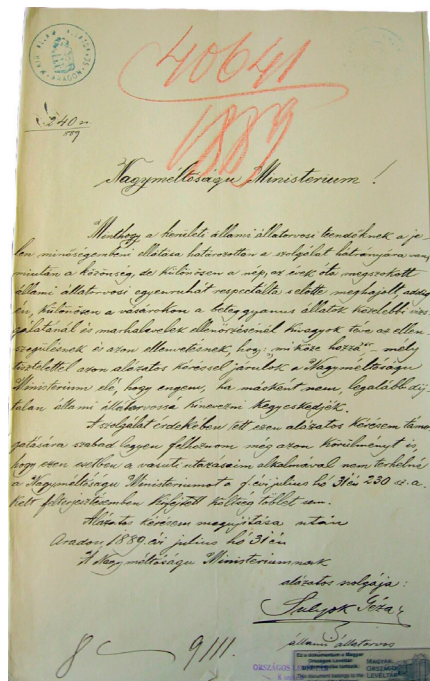 40641
1889
240 sz
889
Nagyméltóságu Ministerium!
Minthogy a kerületi állami állatorvosi teendőknek a je-
len minőségemben ellátása határozottan a szolgálat hátrányára van,
miután a közönség, de különösen a nép, az évek óta megszokott
állami állatorvosi egyenruhát respectálta s előtte meghajolt addig
én, különösen a vásárokon a beteg gyanus állatok közelebbi vizs
gálatánál és marhalevelek ellenőrzésénél kivagyok téve az ellen
szegülésnek és azon ellenvetésnek, hogy: "mi köze hozzá", mély
tisztelettel azon alázatos kéréssel járulok a Nagyméltóságu
Ministerium elé, hogy engem, ha másként nem, legalább díj
talan állami állatorvossá kinevezni kegyeskedjék.
A szolgálat érdekében tett ezen alázatos kérésem támo
gatására szabad legyen felhoznom még azon körülményt is,
hogy ezen esetben a vasuti utazásaim alkalmával nem terhelné
a Nagyméltóságu Ministeriumot a f. évi július hó 31én 230 sz. a.
kelt felterjesztésemben kifejtett költség többlet sem.
Alázatos kérésem megujítása után
Aradon 1889. évi július hó 31én
A Nagyméltóságu Ministeriumnak
alázatos szolgája:
Sulyok Géza
állami állatorvos
8 9/III.
Ez a dokumentum a Magyar
Országos Levéltár
This document belongs to the
MAGYAR
ORSZÁGOS
LEVÉLTÁR
ORSZÁGOS LEVÉLTÁR